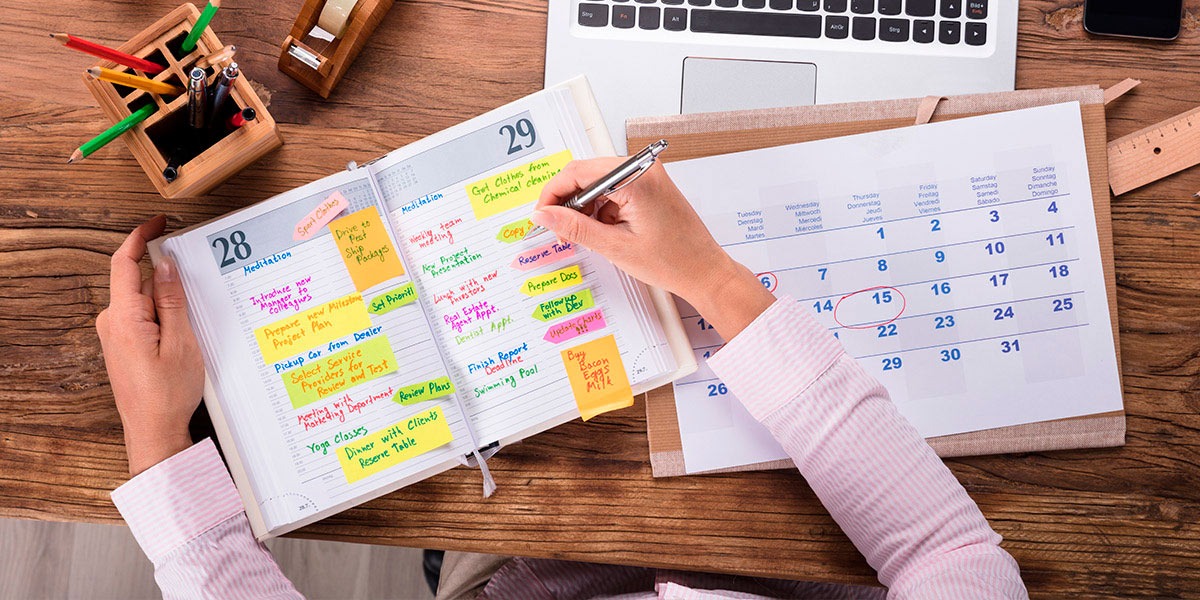 Strg
Fn
Alt
Alt Gr
Strg
28
Meditation
Sport Clothes
Drive to
Post
Ship
Packages
Introduce new
Manager to
colleagues
Set Priorities
Prepare new Milestone
Project Plan
Pickup Car from Dealer
Select Service
Providers for
Review and Test
Review Plans
Meeting with
Marketing Department
Yoga Classes
Dinner with Clients
Reserve Table
29
Meditation
Get Clothes from
Chemical cleaning
Weekly team
meeting
Copy
New Project
Presentation
Reserve Table
Lunch with new
Investors
Prepare Docs
Real Estate
Agent Apps.
Follow up
with Dev
Dentist Appt.
Update Charts
Finish Report
Deadline
Swimming Pool
Buy
Bacon
Eggs
Milk
Tuesday
Dienstag
Mardi
Wednesday
Mittwoch
Mercredi
Thursday
Donnerstag
Jeudi
Friday
Freitag
Vendredi
Saturday
Samstag
Samedi
Sunday
Sonntag
Dimanche
1 2 3 4
6 7 8 9 10 11
14 15 16 17 18
22 23 24 25
26 29 30 31